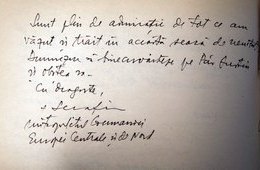 Sunt plin de admirație de tot ce am
văzut și trăit în această seară de neuitat.
Dumnezeu să binecuvânteze pe Păr.
și obștea sa.
Cu dragoste,
+ Serafim
Mitropolitul Germaniei
Europei Centrale și de Nord